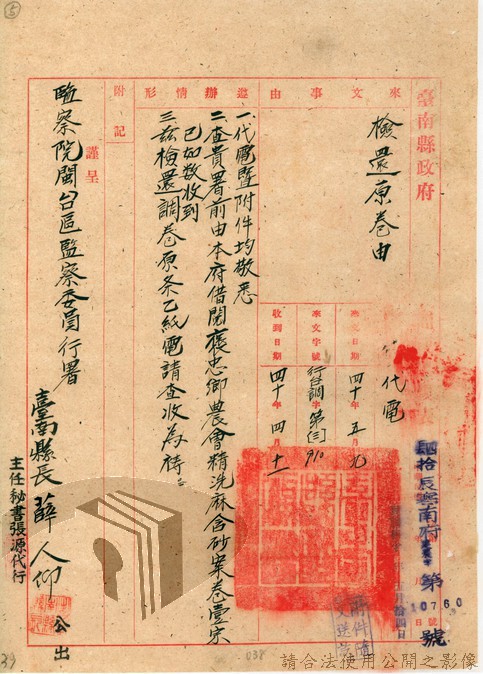 5
臺南縣政府
代電
來文事由
檢還原卷由
來文日期 四十年五月九
來文字號 行台調字第(三)910
收到日期 四十年四月十一
遵辦情形
一、代電暨附件均敬悉
二、查貴署前由本府借閱褒忠鄉農會精洗麻含砂案卷壹宗
已如數收到
三、茲檢還調卷原条乙紙電請查收為禱
附記
謹呈
監察院閩台區監察委員行署
臺南縣長 薛人仰 公出
主任秘書張源代行
肆拾
南府
第
10760
號
附件隨
文送
038
39
請合法使用公開之影像